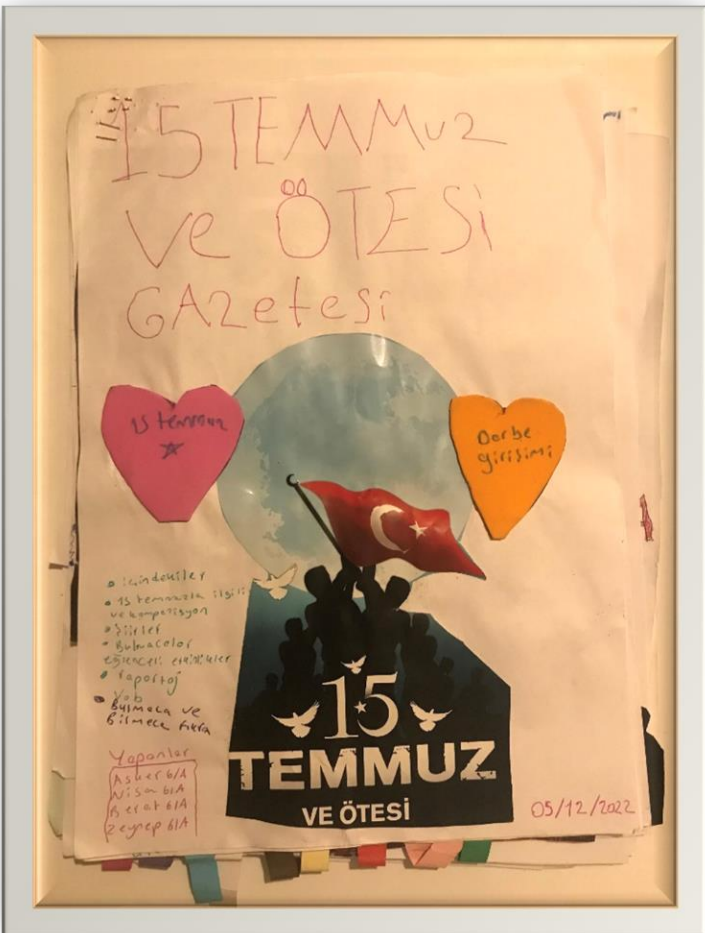 15 TEMMuz
Ve ÖTESİ
GAzetesi
15 temmuz
Darbe
girişimi
• içindekiler
• 15 temmuzla ilgili
ve kompozisyon
• Şiirler
• Bulmacalar
eğlenceli etkinlikler
• raportoj
• Bulmaca ve
Bilmece fıkra
15
TEMMUZ
VE ÖTESİ
Yapanlar
6/A
Nisa 6/A
Berat 6/A
Zeynep 6/A
05/12/2022